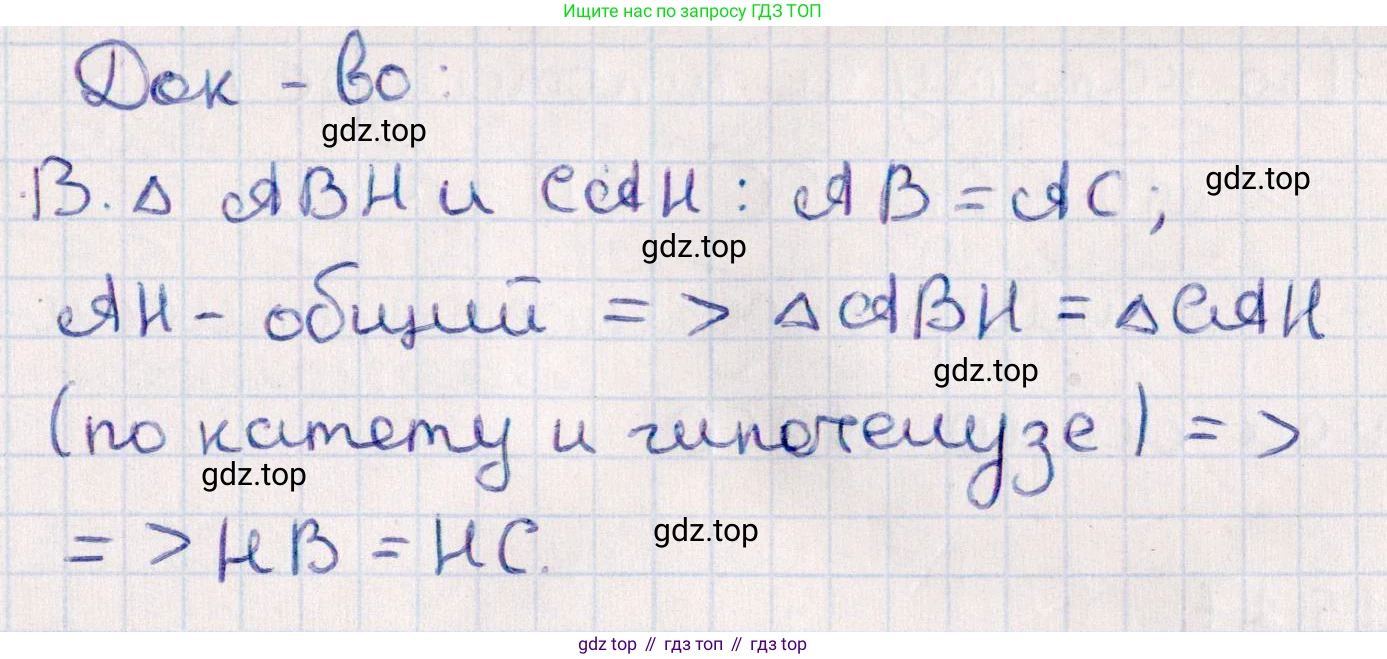 Ищите нас по запросу ГДЗ ТОП
Док - во:
gdz.top
В. △ АВН и САН: АВ = АС;
gdz.top
gdz.top
АН - общий => △АВН = △САН
gdz.top
(по катету и гипотенузе) =>
gdz.top
=> НВ = НС.
gdz.top
gdz top // гдз топ // gdz top